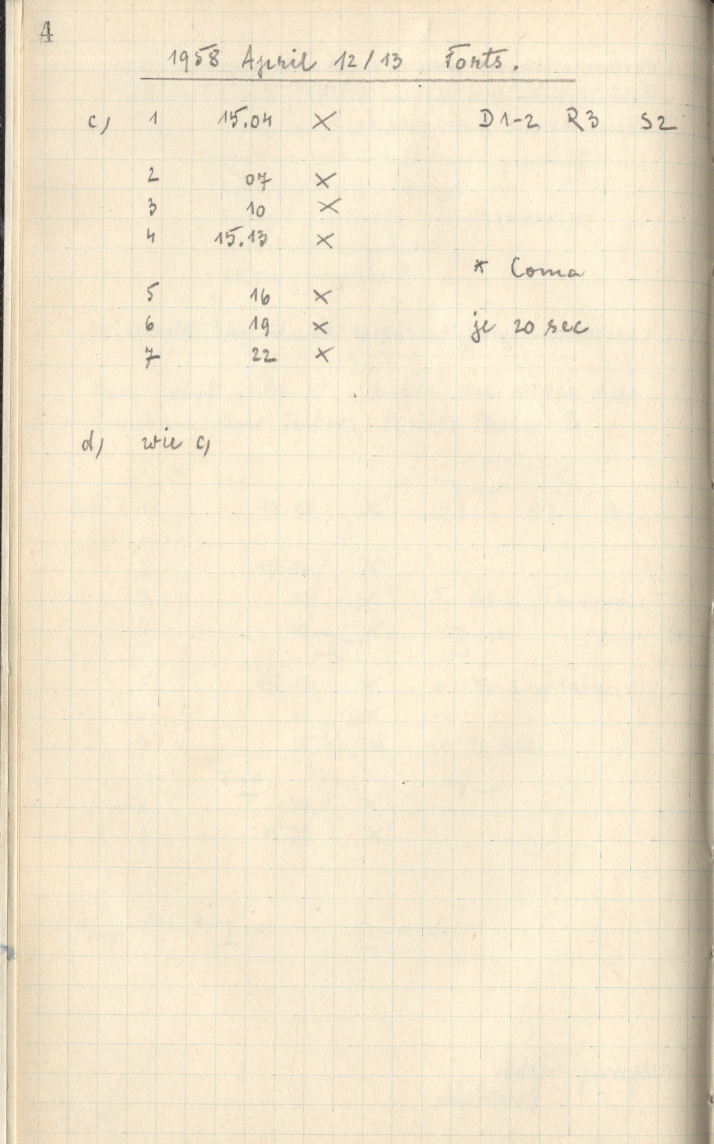 4
1958 April 12/13 Forts.
c) 1 15.04 × D1-2 R3 S2
2 07 ×
3 10 ×
4 15.13 ×
* Coma
5 16 ×
6 19 × je 20 sec
7 22 ×
d) wie c)